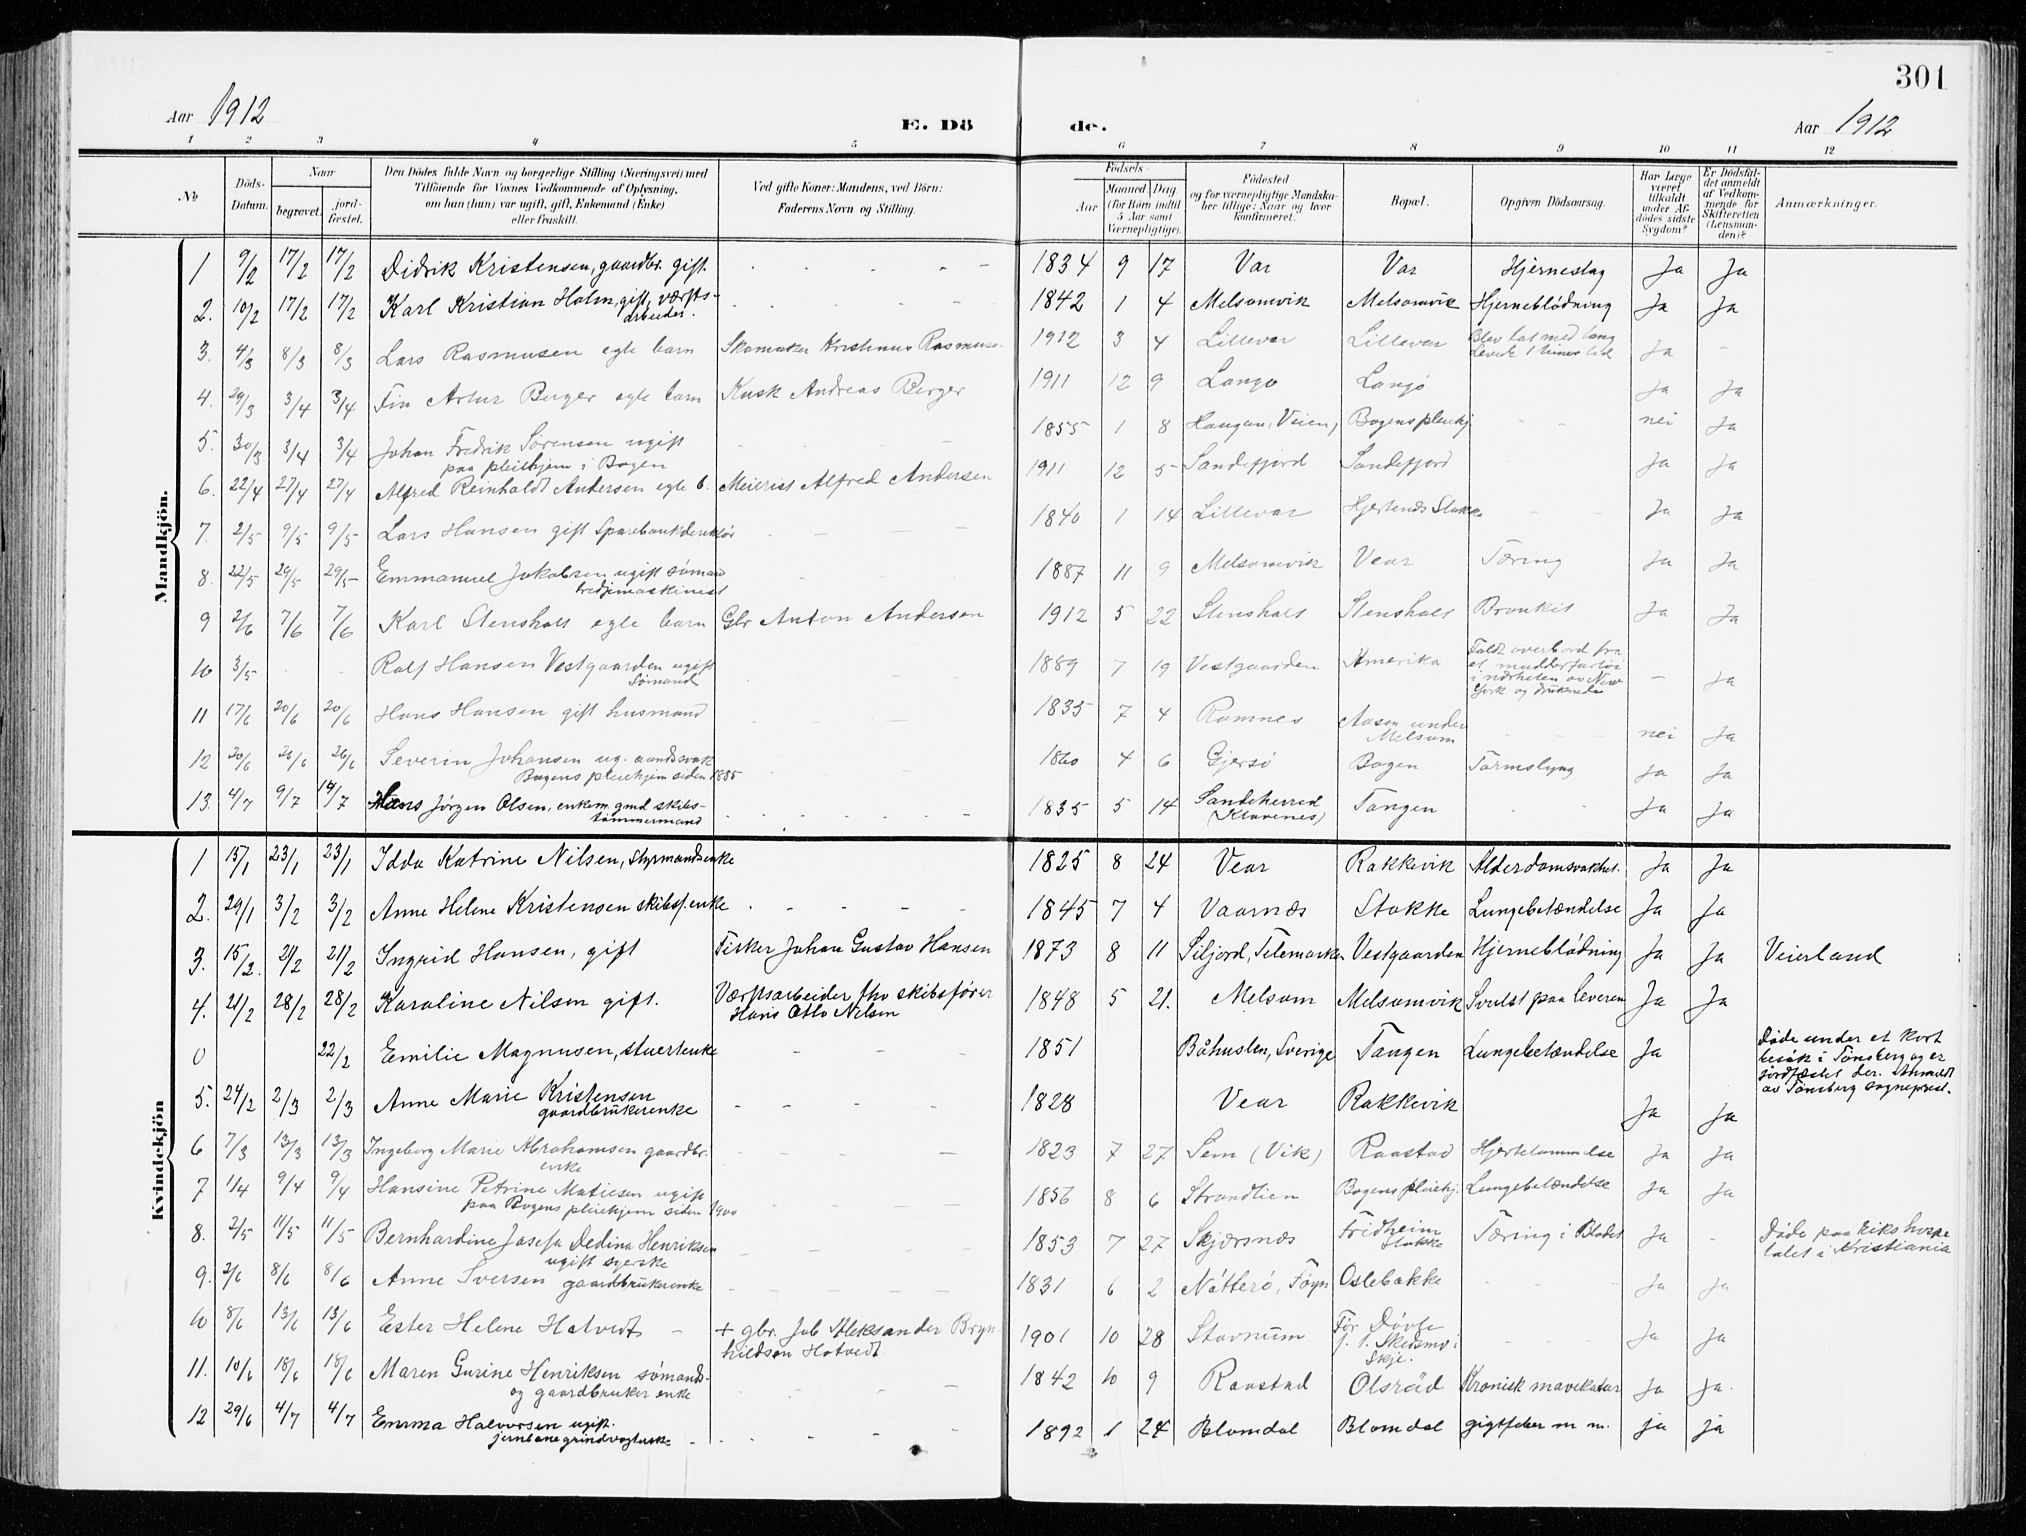 301
Aar 1912 E. Dö de. Aar 1912
1 2 3 4 5 6 7 8 9 10 11 12
No
Döds-Datum.
Naar
begravet.
jord-fæstet.
Den Dödes fulde Navn og borgerlige Stilling (Næringsvei) med
Tilföiende for Voxnes Vedkommende af Oplysning,
om han (hun) var ugift, gift, Enkemand (Enke)
eller fraskilt.
Ved gifte Koner: Mandens, ved Börn:
Faderens Navn og Stilling.
Födsels-
Aar
Maaned Dag
(for Börn indtil
5 Aar samt
Værnepligtige).
Födested
og for værnepligtige Mandska-
ber tillige: Naar og hvor
konfirmeret.
Bopæl.
Opgiven Dödsaarsag.
Har Læge
været
tilkaldt
under Af-
dödes sidste
Sygdom?
Er Dödsfal-
det anmeldt
af Vedkom-
mende for
Skifteretten
(Lensman-
den)?
Anmærkninger.
Mandkjön.
1 9/2 17/2 17/2 Didrik Kristensen, gaardbr. gift. 1834 9 17 Var Var Hjerneslag Ja Ja
2. 10/2 17/2 17/2 Karl Kristian Holm, gift, værfts-
arbeider. 1842 1 4 Melsomvik Melsomvik Hjerneblödning Ja Ja
3. 4/3 8/3 8/3 Lars Rasmusen egte barn Skomaker Kristinus Rasmuse. 1912 3 4 Lillevar Lillevar Blev lat med tang
Levde 1 times tid Ja –
4. 29/3 3/4 3/4 Fin Artur Berger egte barn Kusk Andreas Berger 1911 12 9 Langø Langø Ja Ja
5. 30/3 3/4 3/4 Johan Fredrik Sørensen ugift
paa pleiehjem i Bogen 1855 1 8 Haugan, Veien, Bogens pleiehj nei Ja
6. 22/4 27/4 27/4 Alfred Reinholdt Andersen egte b. Meierist Alfred Andersen 1911 12 5 Sandefjord Sandefjord Ja Ja
7. 2/5 9/5 9/5 Lars Hansen gift Sparebankdirektör 1840 1 14 Lillevar Hjertnes Stokke Ja Ja
8. 22/5 29/5 29/5 Emmanuel Jakobsen ugift sømand
tredjemaskinist 1887 11 9 Melsomvik Vear Tæring Ja Ja
9 2/6 7/6 7/6 Karl Stensholt egte barn Gbr Anton Andersen 1912 5 22 Stensholt Stensholt Bronkit Ja Ja
10 3/5 Rolf Hansen Vestgaarden ugift
Sömand 1889 7 19 Vestgaarden Amerika Faldt overbord fra
et mudderfartöi
i nærheten av New
York og druknede – Ja
11 17/6 20/6 20/6 Hans Hansen gift husmand 1835 7 4 Ramnes Aasen under
Melsom nei Ja
12 20/6 26/6 26/6 Severin Johansen ug. aandssvak
Bogens pleiehjem siden 1885 1860 4 6 Gjersö Bogen Tarmslyng Ja Ja
13. 4/7 9/7 14/7 Hans Jörgen Olsen, enkem. gmd skibs-
tømmermand 1835 5 14 Sandeherred
(Klavenes) Tangen Ja Ja
Kvindekjön
1 15/1 23/1 23/1 Idda Katrine Nilsen, Styrmandsenke 1825 8 24 Vear Rakkevik Alderdomsvakhet. Ja Ja
2. 29/1 3/2 3/2 Anne Helene Kristensen skibsf.enke 1845 7 4 Vaarnæs Stokke Lungebetændelse Ja Ja
3. 15/2. 21/2 21/2 Ingrid Hansen, gift Fisker Johan Gustav Hansen 1873 8 11 Siljord, Telemarken Vestgaarden Hjerneblödning Ja Ja Veierland
4. 21/2 28/2 28/2 Karoline Nilsen gift. Værftsarbeider fhv skibsfører
Hans Otto Nilsen 1848 5 21. Melsom Melsomvik Svulst paa leveren Ja Ja
0 22/2 Emilie Magnusen, stuertenke 1851 Båhuslen, Sverige Tangen Lungebetændelse Ja Døde under et kort
besøk i Tönsberg og er
jordfæstet der. Anmeldt
av Tönsberg sogneprest.
5. 24/2 2/3 2/3 Anne Marie Kristensen
gaardbrukerenke 1828 Vear Rakkevik Ja Ja
6 7/3 13/3 13/3 Ingeborg Marie Abrahamsen gaardbr.
enke 1823 7 27 Sem (Vik) Raastad Hjertelammelse Ja Ja
7 1/4 9/4 9/4 Hansine Petrine Matiesen ugift
paa Bogens pleiehjem siden 1900 1856 8 6 Strandlien Bogens pleiehj. Lungebetændelse Ja Ja
8. 2/5 11/5 11/5 Bernhardine Josefa Dedina Henriksen
ugift syerske 1853 7 27 Skjærsnæs Fridheim
Stokke Tæring i Blodet Ja – Døde paa Rikshospi
talet i Kristiania
9. 2/6 8/6 8/6 Anne Iversen gaardbrukerenke 1831 6 2 Nøtterø, Föyn Oslebakke Ja Ja
10 8/6 13/6 13/6 Ester Helene Hotvedt – + gbr. Job Aleksander Bryn
hildsen Hotvedt 1901 10 28 Stavnum För Døvle
f. t. Skedsmo i
Skje. Ja Ja
11. 10/6 18/6 18/6 Maren Gurine Henriksen sømands-
og gaardbruker enke 1842 10 9 Raastad Olsröd Kronisk mavekatar Ja Ja.
12 29/6 4/7 4/7 Emma Halvorsen ugift.
jernbanegrindvogterske 1892 1 24 Blomdal Blomdal gigtfeber m m. ja ja